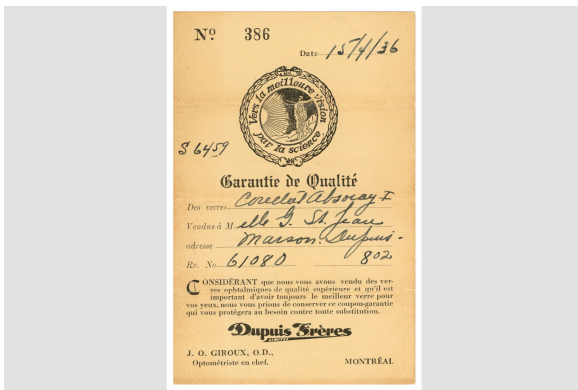 Nº 386
Date 15/4/36
Vers la meilleure vision
par la science
S 6459
Garantie de Qualité
Des verres
Vendus à Melle G. St. Jean
adresse Maison Dupuis -
Rx. No 61080 802
CONSIDÉRANT que nous vous avons vendu des ver-
res ophtalmiques de qualité supérieure et qu'il est
important d'avoir toujours le meilleur verre pour
vos yeux, nous vous prions de conserver ce coupon-garantie
qui vous protégera au besoin contre toute substitution.
Dupuis Frères
LIMITÉE
J. O. GIROUX, O.D.,
Optométriste en chef. MONTRÉAL